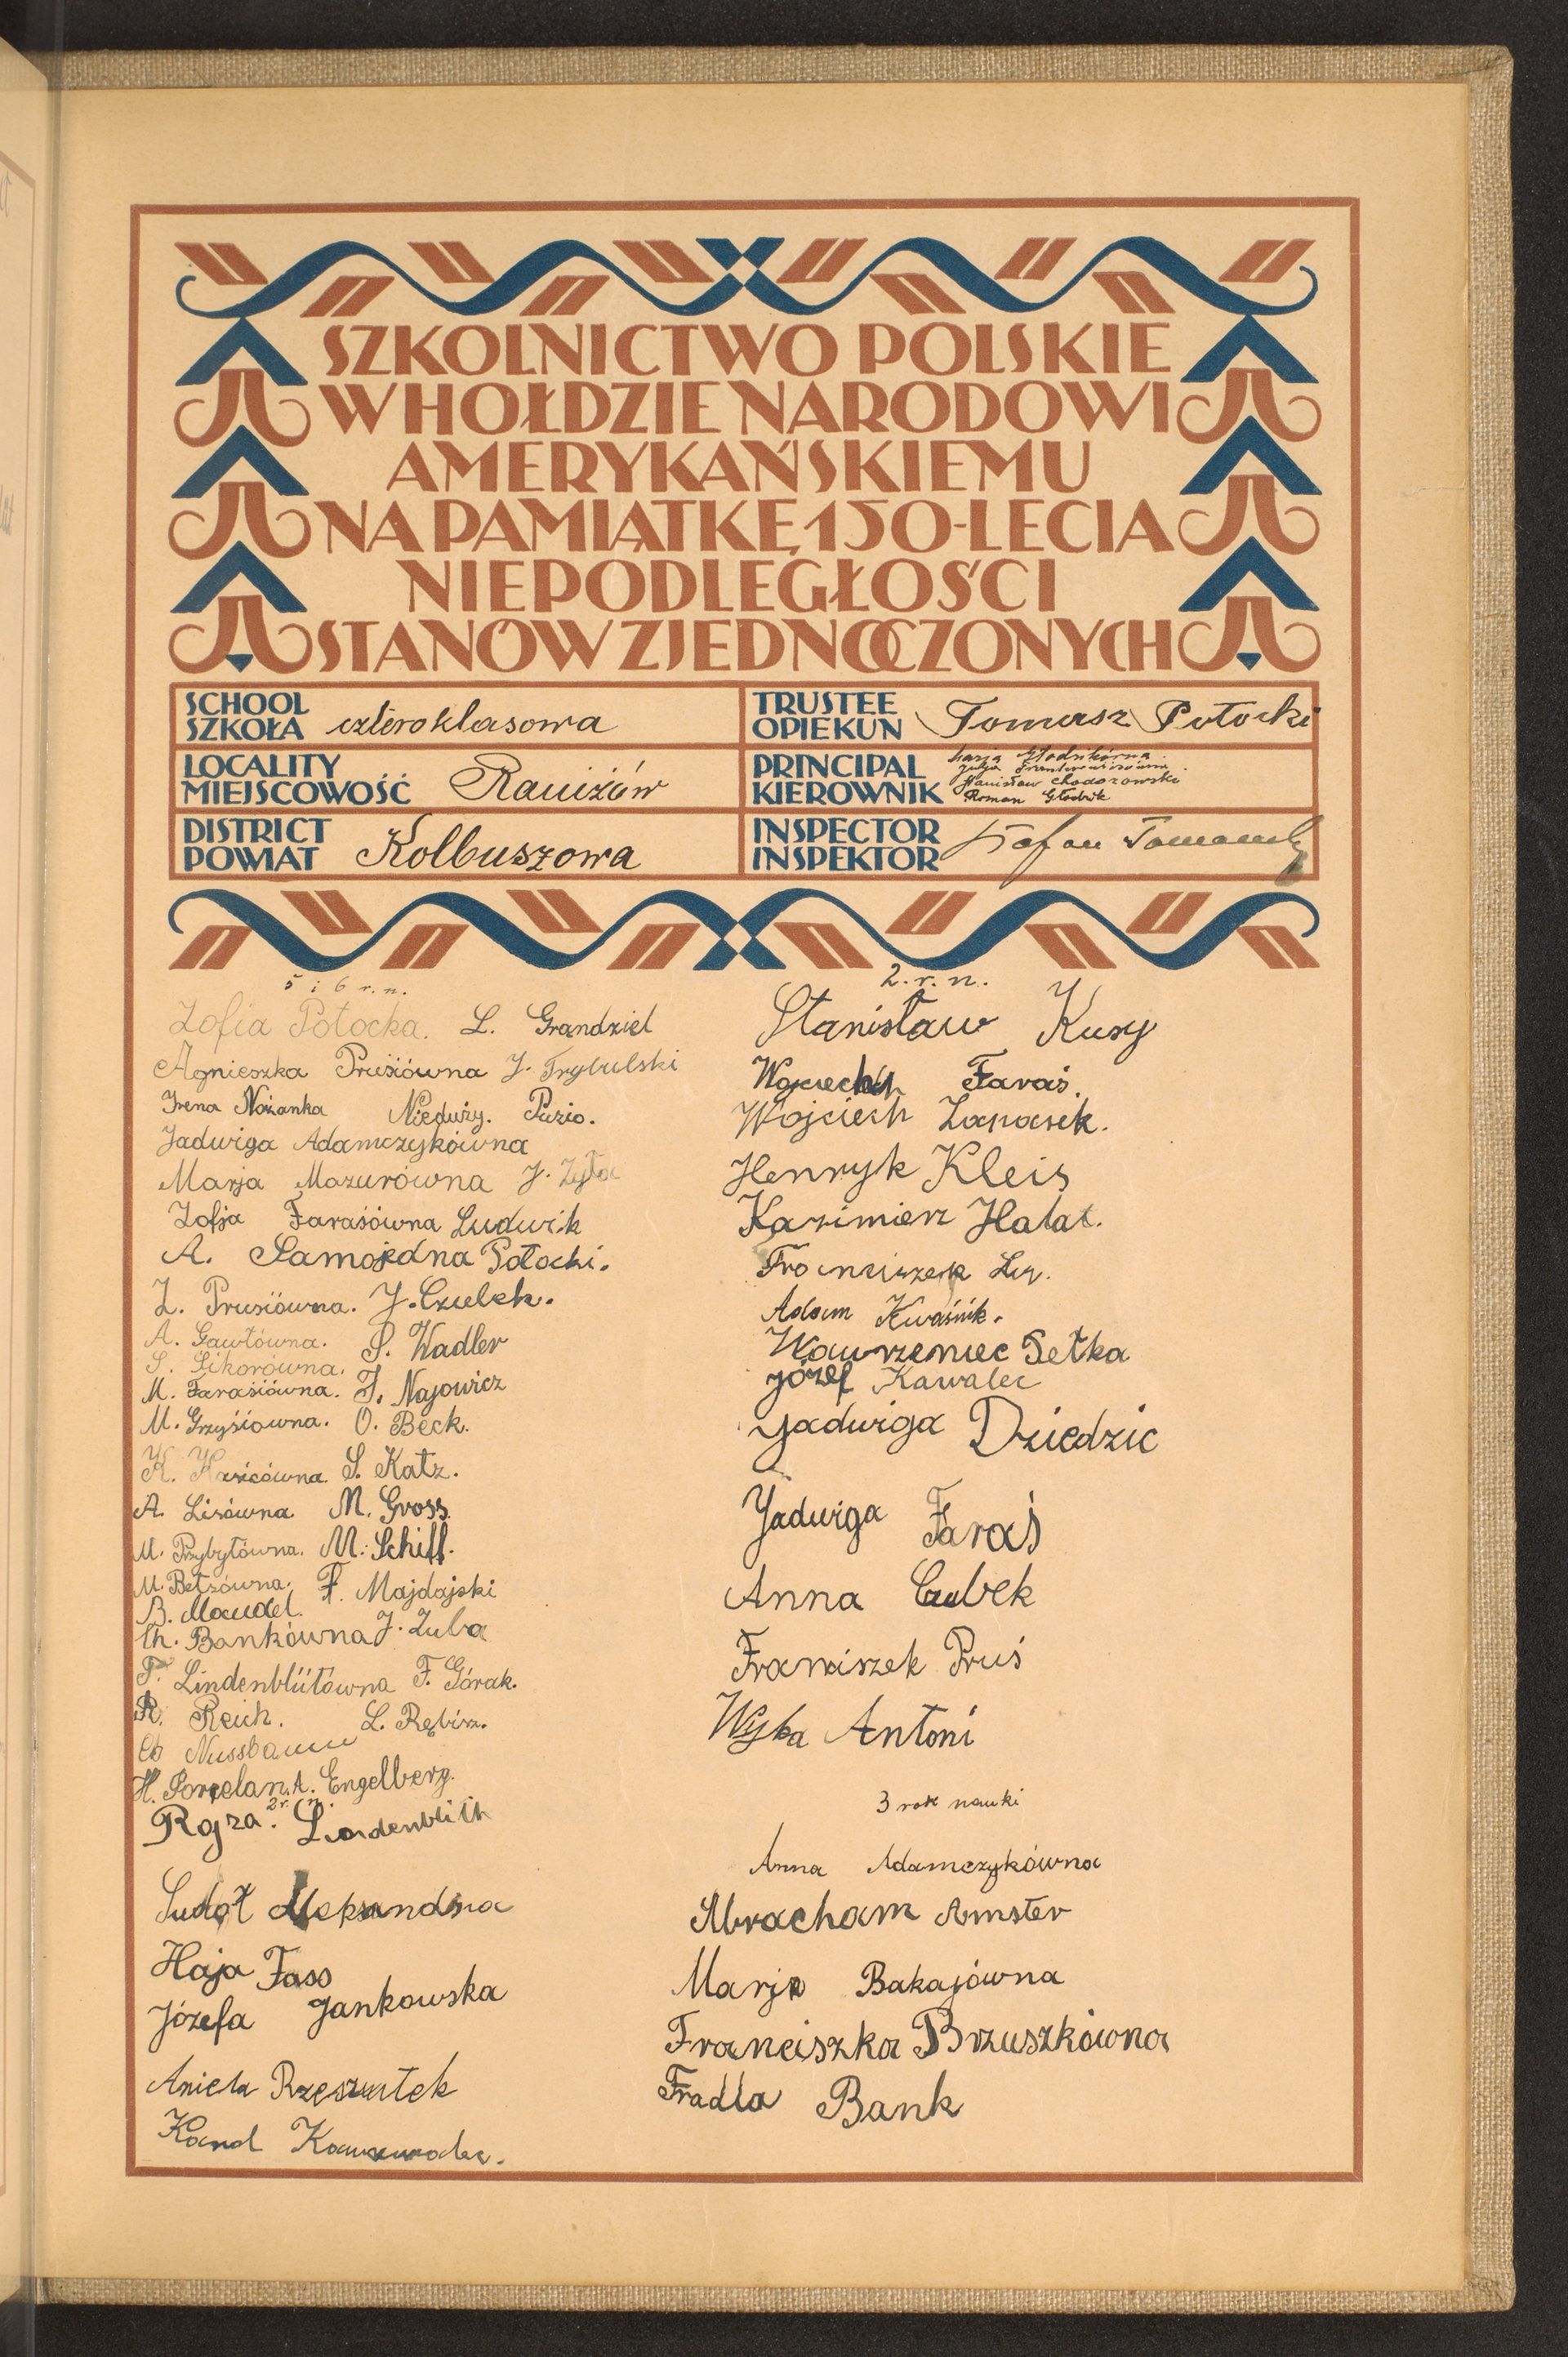 SZKOLNICTWO POLSKIE
W HOŁDZIE NARODOWI
AMERYKAŃSKIEMU
NA PAMIĄTKĘ 150-LECIA
NIEPODLEGŁOŚCI
STANÓW ZJEDNOCZONYCH
SCHOOL
SZKOŁA czteroklasowa
TRUSTEE
OPIEKUN Tomasz Potocki
LOCALITY
MIEJSCOWOŚĆ Raniżów
PRINCIPAL
KIEROWNIK
Marja Głodzikówna
Julja
Stanisław Chodorowski
Roman Głodzik
DISTRICT
POWIAT Kolbuszowa
INSPECTOR
INSPEKTOR
5 i 6 r. n.
Zofia Potocka. L. Grandziel
Agnieszka Prusiówna J. Trybulski
Irena Nożanka Nieduży. Puzio.
Jadwiga Adamczykówna
Marja Mazurówna J. Żyła
Zofja Farasiówna Ludwik
A. Samojedna Potocki.
Z. Prusiówna. J. Czubek.
A. Gawłówna. S. Wadler
S. Sikorówna.
M. Farasiówna. F. Najowicz
M. Grzyśiowna. O. Beck.
K. Kasicówna S. Katz.
A. Lisówna. M. Gross.
M. Przybyłówna. M. Schiff.
M. Betzówna. F. Majdajski
B. Mandel.
Ch. Bankówna J. Zuba
P. Lindenblütówna F. Górak.
R. Reich. L. Rębisz.
Ch Nussbaum
H. Porcelan. A. Engelberg.
2 r. n.
Rojza Lindenblith
Sudoł Aleksandra
Haja Fass
Józefa Jankowska
Aniela Rzeszutek
Karol
2. r. n.
Stanisław Kusy
Wojciech Faraś.
Wojciech Zapasek.
Henryk Kleis
Kazimierz Halat.
Franciszek
Adam Kwaśnik.
Wawrzeniec Setka
Józef Kawalec
Jadwiga Dziedzic
Jadwiga Faraś
Anna Czubek
Franciszek Pruś
Wyka Antoni
3 rok nauki
Anna Adamczykówna
Abracham Amster
Marja Bakajówna
Franciszka Brzuszkówna
Fradla Bank